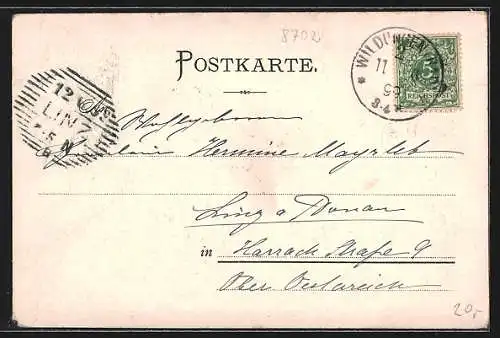 8702
POSTKARTE.
WILDUNGEN
11
99
3-4
5
REICHSPOST
12
LINZ
Wohlgeboren
Fräulein Hermine Mayrleb
Linz a Donau
in Harrach Straße 9
Ober Oesterreich
20,-